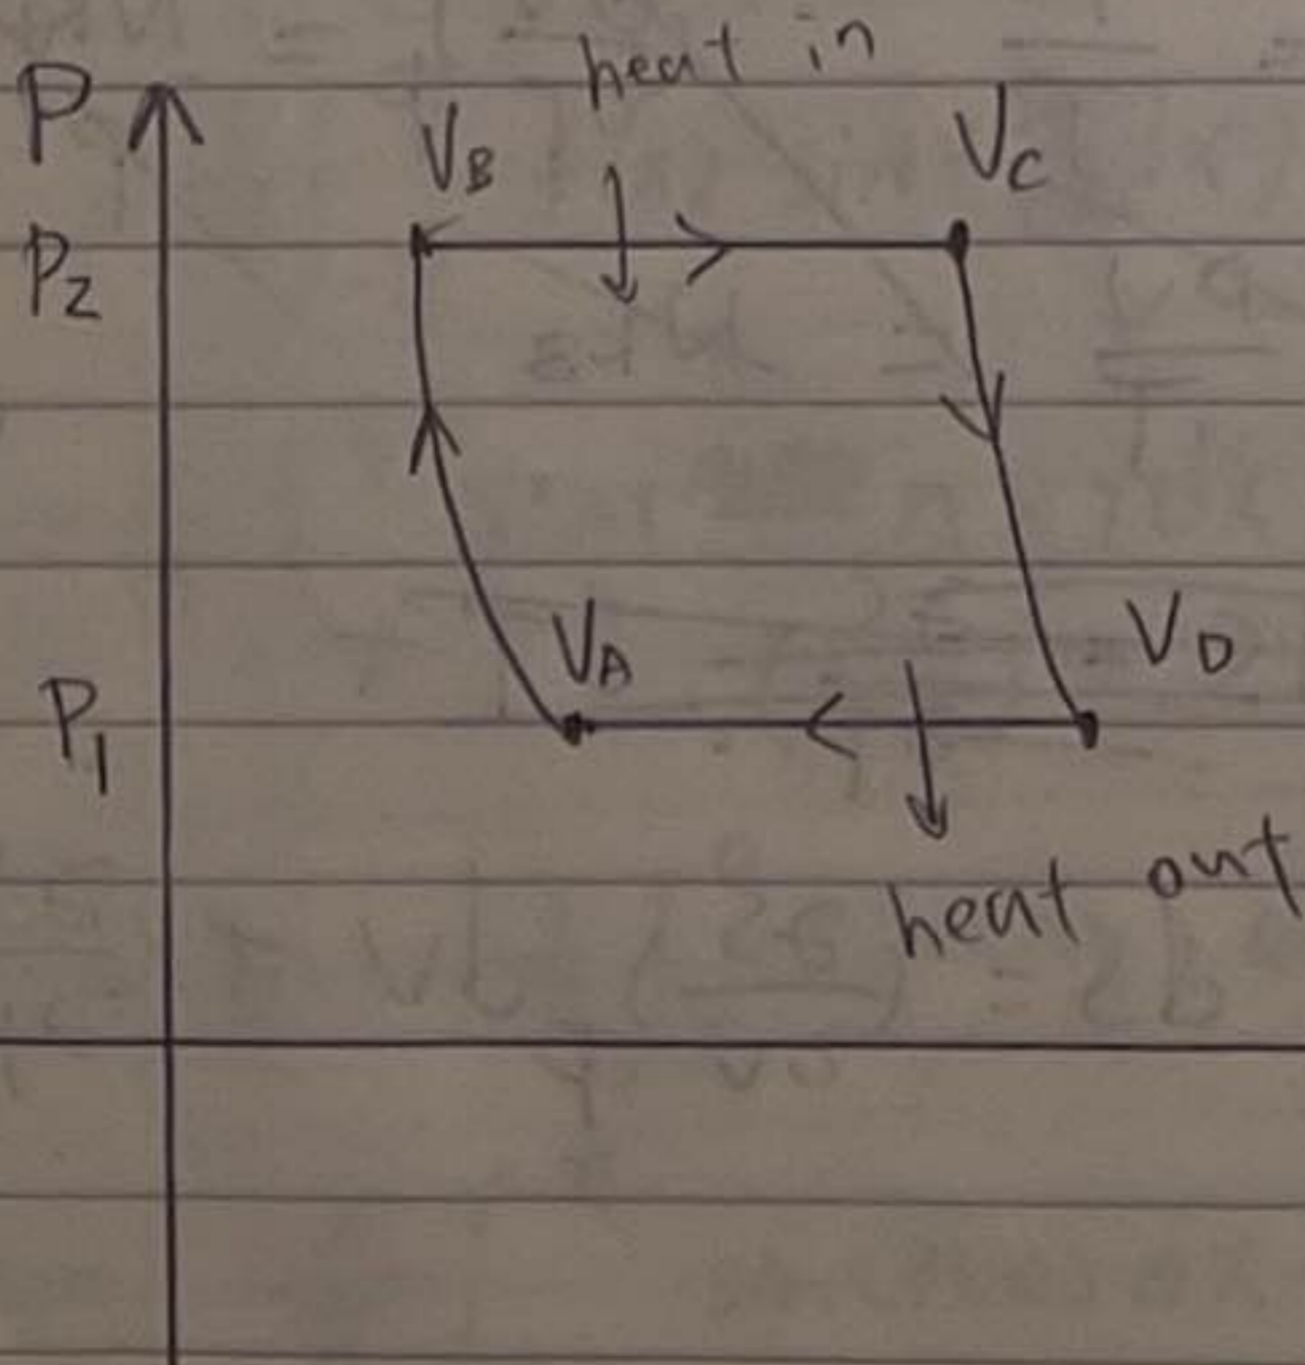 heat in
P
V_B
V_C
P_2
V_A
V_D
P_1
heat out